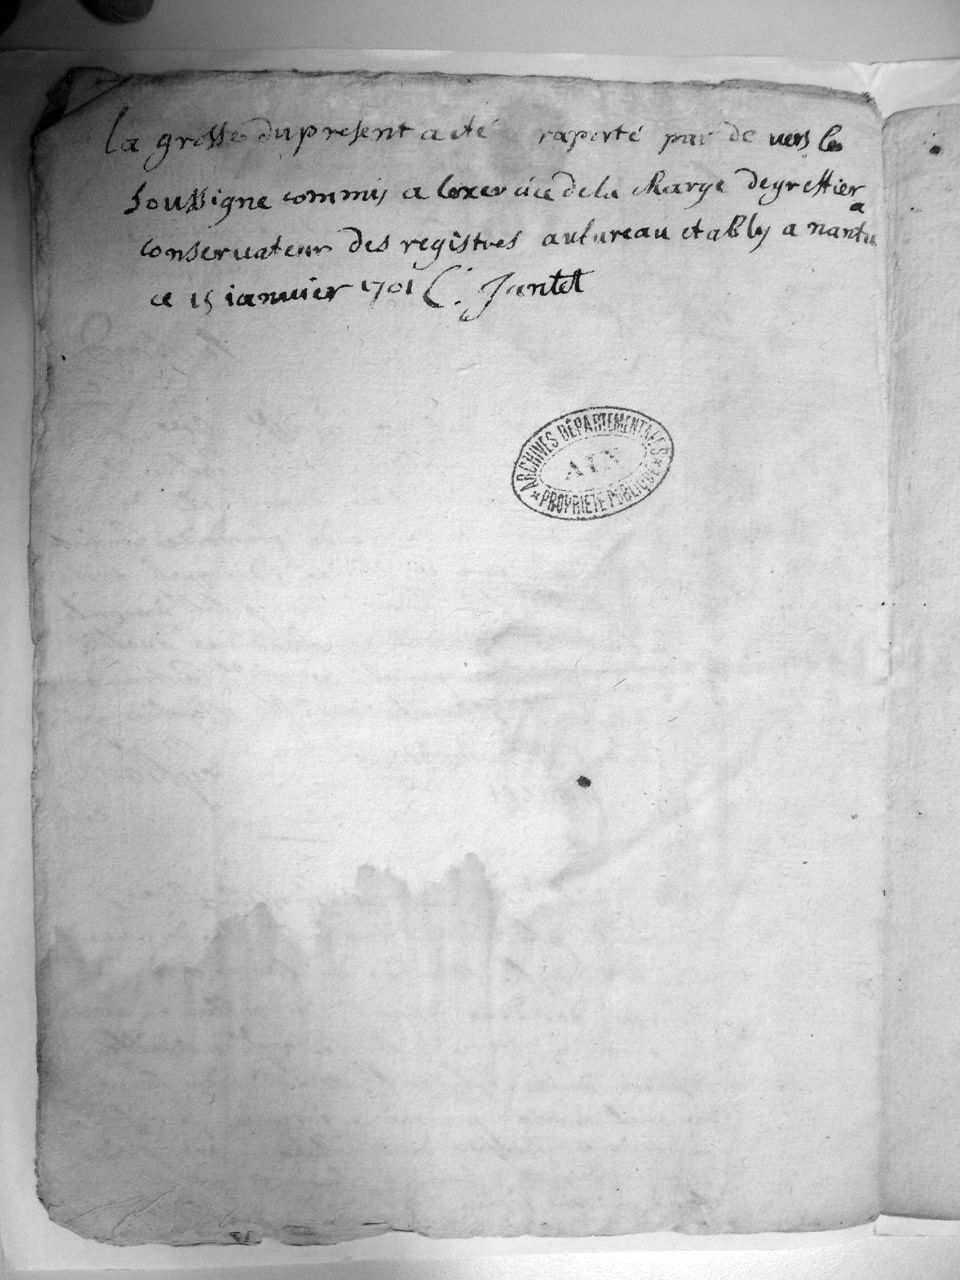 La grosse du present a eté raporté par de vers le
soussigne commis a lexercice de la charge de greffier
conservateur des registres au bureau etably a nantua
ce 15 ianvier 1701 C. Jantet
ARCHIVES DÉPARTEMENTALES
AIN
PROPRIÉTÉ PUBLIQUE